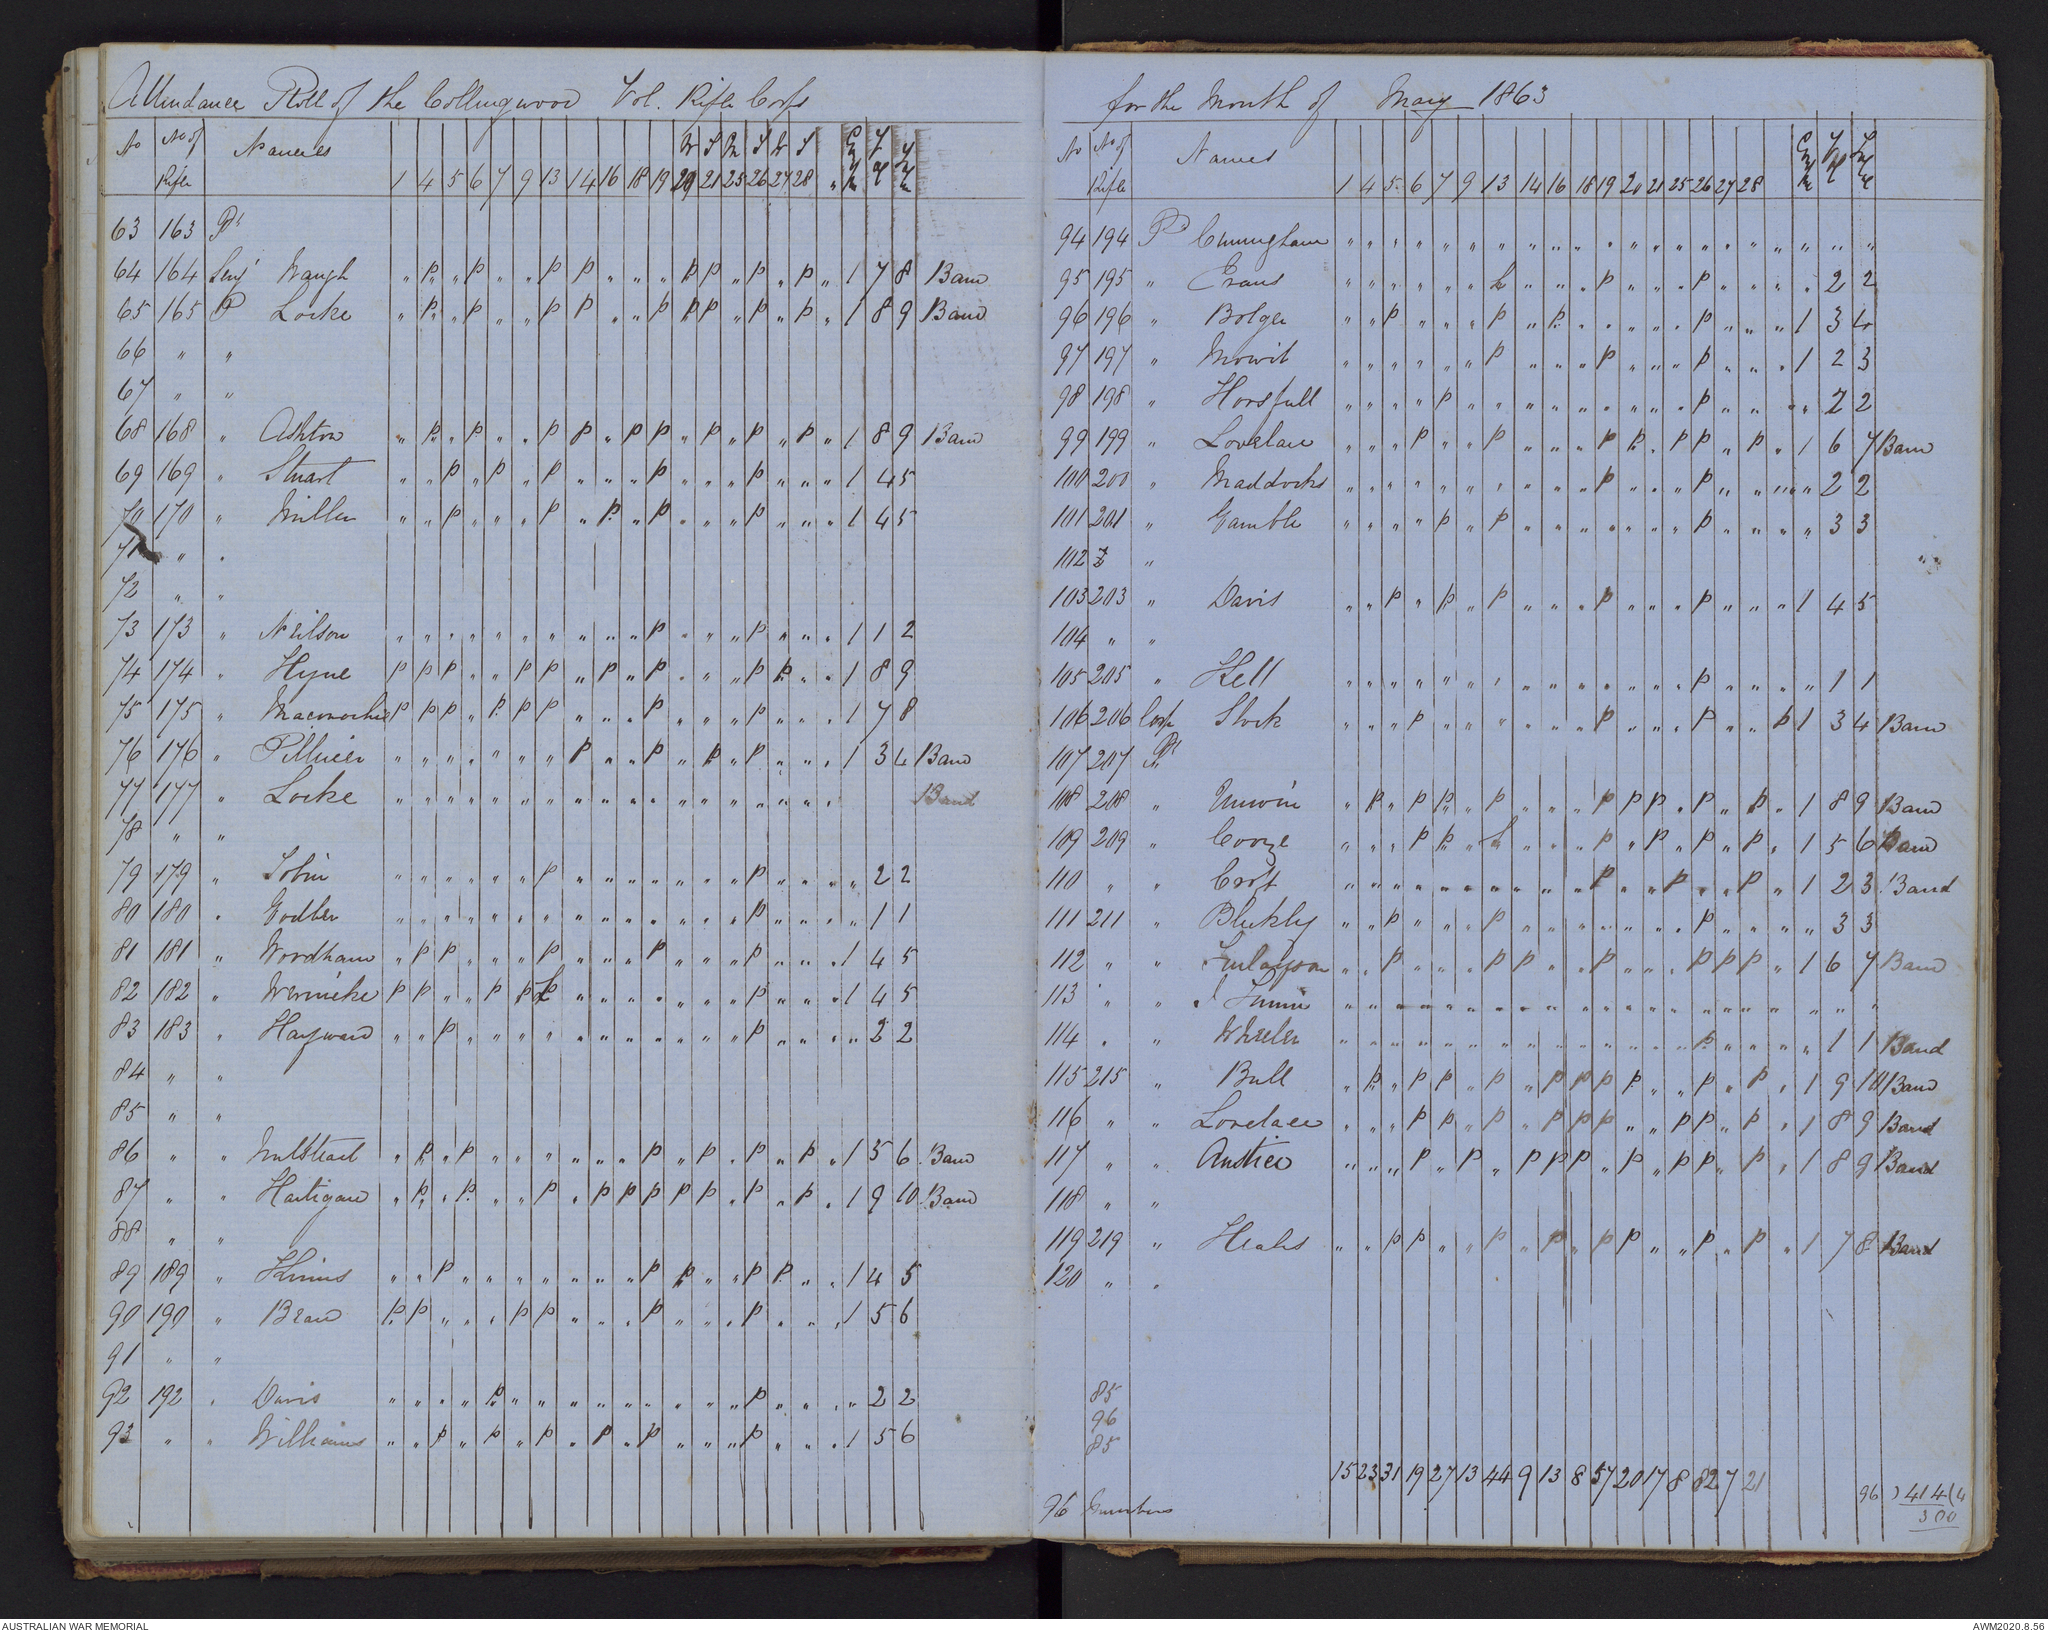 Attendance Roll of the Collingwood Vol. Rifle Corps
No No of Rifle Names 1 4 5 6 7 9 13 14 16 18 19 20 21 25 26 27 28
63 163 Pt
64 164 Waugh " p " p " " p p " " " p p " p " p " 1 7 8 Band
65 165 P Locke " p " p " " p p " " p p p " p " p " 1 8 9 Band
66 " "
67 " "
68 168 " Ashton " p " p " " p p " p p " p " p " p " 1 8 9 Band
69 169 " Stuart " " p " p " p " " " p " " " p " " " 1 4 5
70 170 " Miller " " p " " " p " p " p " " " p " " " 1 4 5
71 " "
72 " "
73 173 " Neilson " " " " " " " " " " p " " " p " " " 1 1 2
74 174 " Hyne p p p " " p p " p " p " " " p p " " 1 8 9
75 175 " Maconochie p p p " p p p " " " p " " " p " " " 1 7 8
76 176 " " " " " " " " p " " p " p " p " " " 1 3 4 Band
77 177 " Locke " " " " " " " " " " " " " " " " " " Band
78 " "
79 179 " Tobin " " " " " " p " " " " " " " p " " " " 2 2
80 180 " Godber " " " " " " " " " " " " " " p " " " " 1 1
81 181 " Wordham " p p " " " p " " " p " " " p " " " 1 4 5
82 182 " Wernicke p p " " p p " " " " " " " p " " " 1 4 5
83 183 " Hayward " " p " " " " " " " " " " " p " " " " 2 2
84 " "
85 " "
86 " " " p " p " " " " " " p " p " p " p " 1 5 6 Band
87 " " Hartigan " p " p " " p " p p p p p " p " p " 1 9 10 Band
88 " "
89 189 " " " p " " " " " " " p p " " p p " " 1 4 5
90 190 " p p " " " p p " " " p " " " p " " " 1 5 6
91 " "
92 192 " Davis " " " " p " " " " " " " " " p " " " " 2 2
93 " " Williams " " p " p " p " p " p " " " p " " " 1 5 6
for the Month of May 1863
No No of Rifle Names 1 4 5 6 7 9 13 14 16 18 19 20 21 25 26 27 28
94 194 Pt Cunningham " " " " " " " " " " " " " " " " " " " " "
95 195 " Evans " " " " " " " " " p " " " p " " " " 2 2
96 196 " Bolger " " p " " " p " p " " " " " p " " " 1 3 4
97 197 " Mowit " " " " " " p " " " p " " " p " " " 1 2 3
98 198 " Horsfull " " " " p " " " " " " " " " p " " " " 2 2
99 199 " Lovelace " " " p " " p " " " p p " p p " p " 1 6 7 Band
100 200 " Maddocks " " " " " " " " " " p " " " p " " " " 2 2
101 201 " Gamble " " " " p " p " " " " " " " p " " " " 3 3
102 "
103 203 " Davis " " p " p " p " " " p " " " p " " " 1 4 5
104 " "
105 205 " Kell " " " " " " " " " " " " " " p " " " " 1 1
106 206 Corp Stock " " " p " " " " " " p " " " p " " p 1 3 4 Band
107 207 Pt
108 208 " Unwin " p " p p " p " " " p p p " p " p " 1 8 9 Band
109 209 " " " " p p " " " " p " p " p " p " 1 5 6 Band
110 " " Croft " " " " " " " " " " p " " p " " p " 1 2 3 Band
111 211 " Bleckly " " p " " " p " " " " " " " p " " " " 3 3
112 " " Finlayson " " p " " " p p " " p " " " p p p " 1 6 7 Band
113 " " " " " " " " " " " " " " " " " " " " " " "
114 " " Wheeler " " " " " " " " " " " " " " p " " " " 1 1 Band
115 215 " Bull " p " p p " p " p p p p " " p " p " 1 9 10 Band
116 " " Lovelace " " " p p " p " p p p " " p p " p " 1 8 9 Band
117 " " " " " p " p " p p p " p " p p " p " 1 8 9 Band
118 " "
119 219 " Heales " " p p " " p " p " p p " " p " p " 1 7 8 Band
120 " "
85
96
85
15 23 31 19 27 13 44 9 13 8 57 20 17 8 82 7 21
96 Members
96 ) 414 ( 4
AUSTRALIAN WAR MEMORIAL
AWM2020.8.56